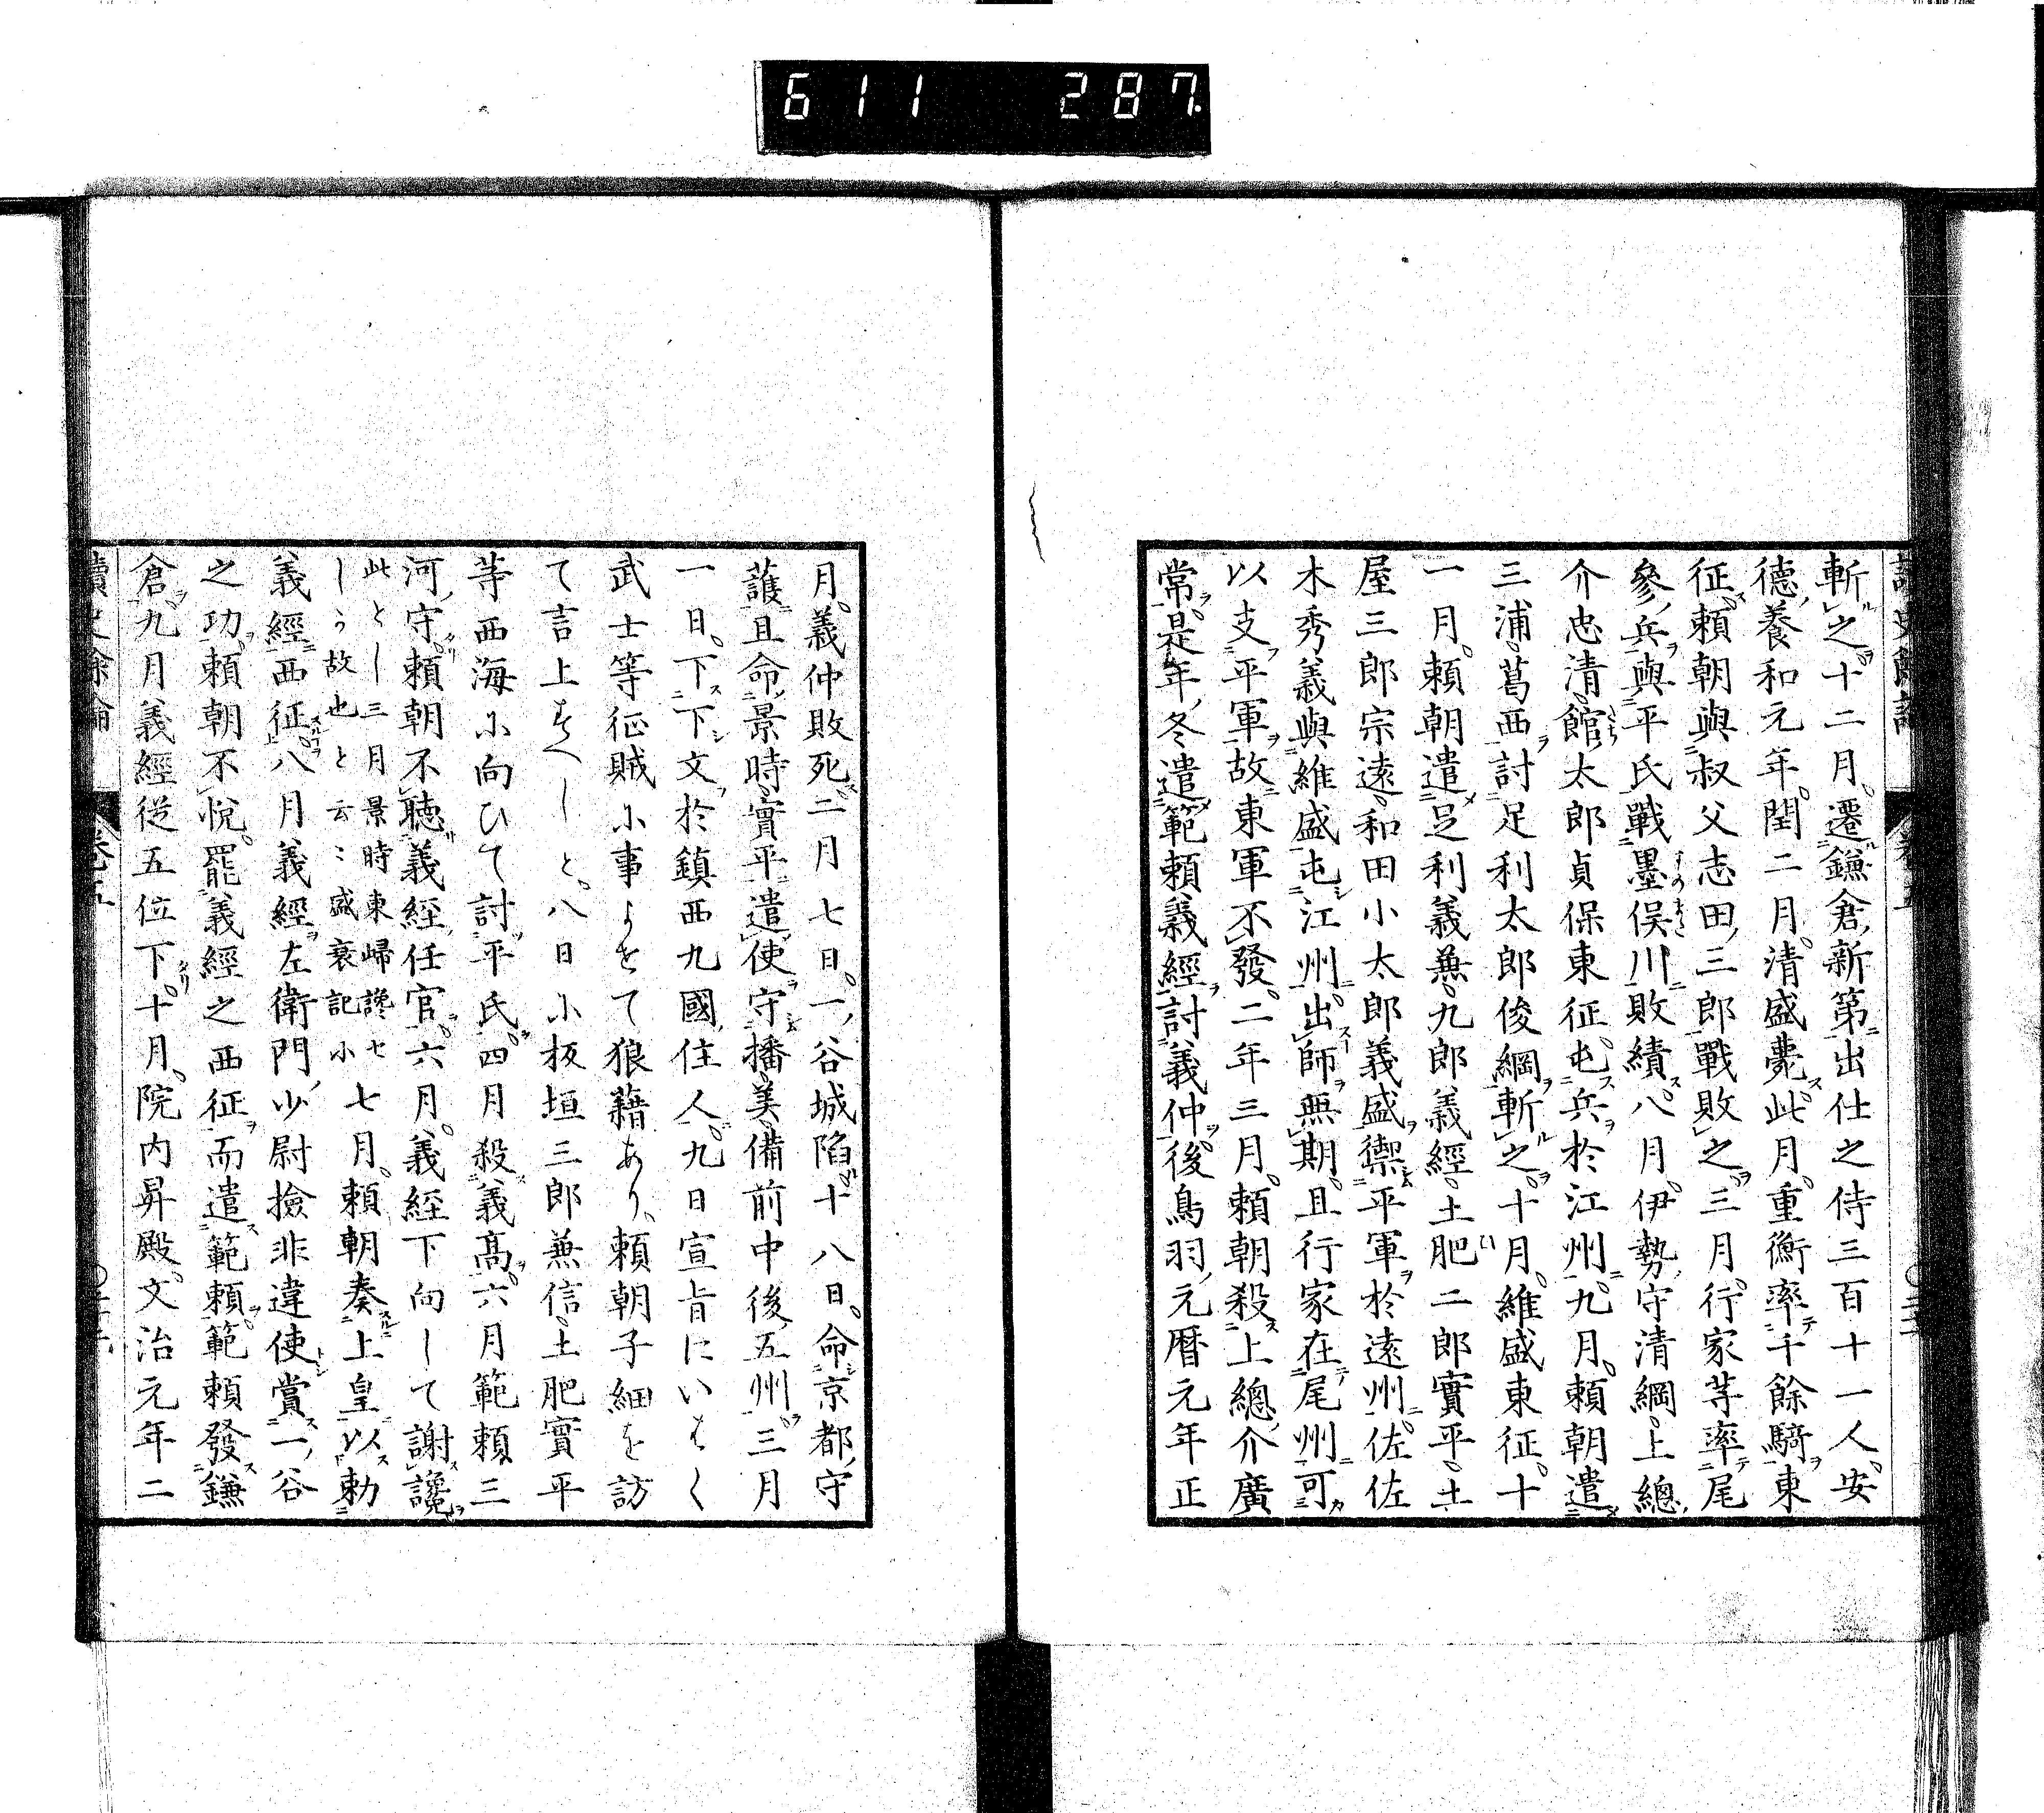 611 287
斬之十二月遷鎌倉新第出仕之侍三百十一人安
德養和元年閏二月清盛薨此月重衡率千餘騎東
征頼朝與叔父志田三郎戰敗之三月行家等率尾
參兵與平氏戰墨俣川敗績八月伊勢守清綱上總
介忠清館太郎貞保東征屯兵於江州九月頼朝遣
三浦葛西討足利太郎俊綱斬之十月維盛東征十
一月頼朝遣足利義兼九郎義經土肥二郎實平土
屋三郎宗遠和田小太郎義盛禦平軍於遠州佐佐
木秀義與維盛屯江州出師無期且行家在尾州可
以支平軍故東軍不發二年三月頼朝殺上總介廣
常是年冬遣範頼義經討義仲後鳥羽元暦元年正
月義仲敗死二月七日一谷城陷十八日命京都守
護且命景時實平遣使守播美備前中後五州三月
一日下下文於鎮西九國住人九日宣旨にいはく
武士等征賊小事よせて狼藉あり頼朝子細を訪
て言上すへしと八日小板垣三郎兼信土肥實平
等西海小向ひて討平氏四月殺義高六月範頼三
河守頼朝不聽義經任官六月義經下向して謝讒
此とし三月景時東歸讒せ
しう故也と云〻盛衰記小
七月頼朝奏上皇以勅
義經西征八月義經左衛門少尉撿非違使賞一谷
之功頼朝不悅罷義經之西征而遣範頼範頼發鎌
倉九月義經從五位下十月院内昇殿文治元年二
讀史餘論 卷五